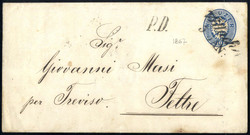 P.D.
Sig.
Giovanni Masi
per Treviso.
Feltre